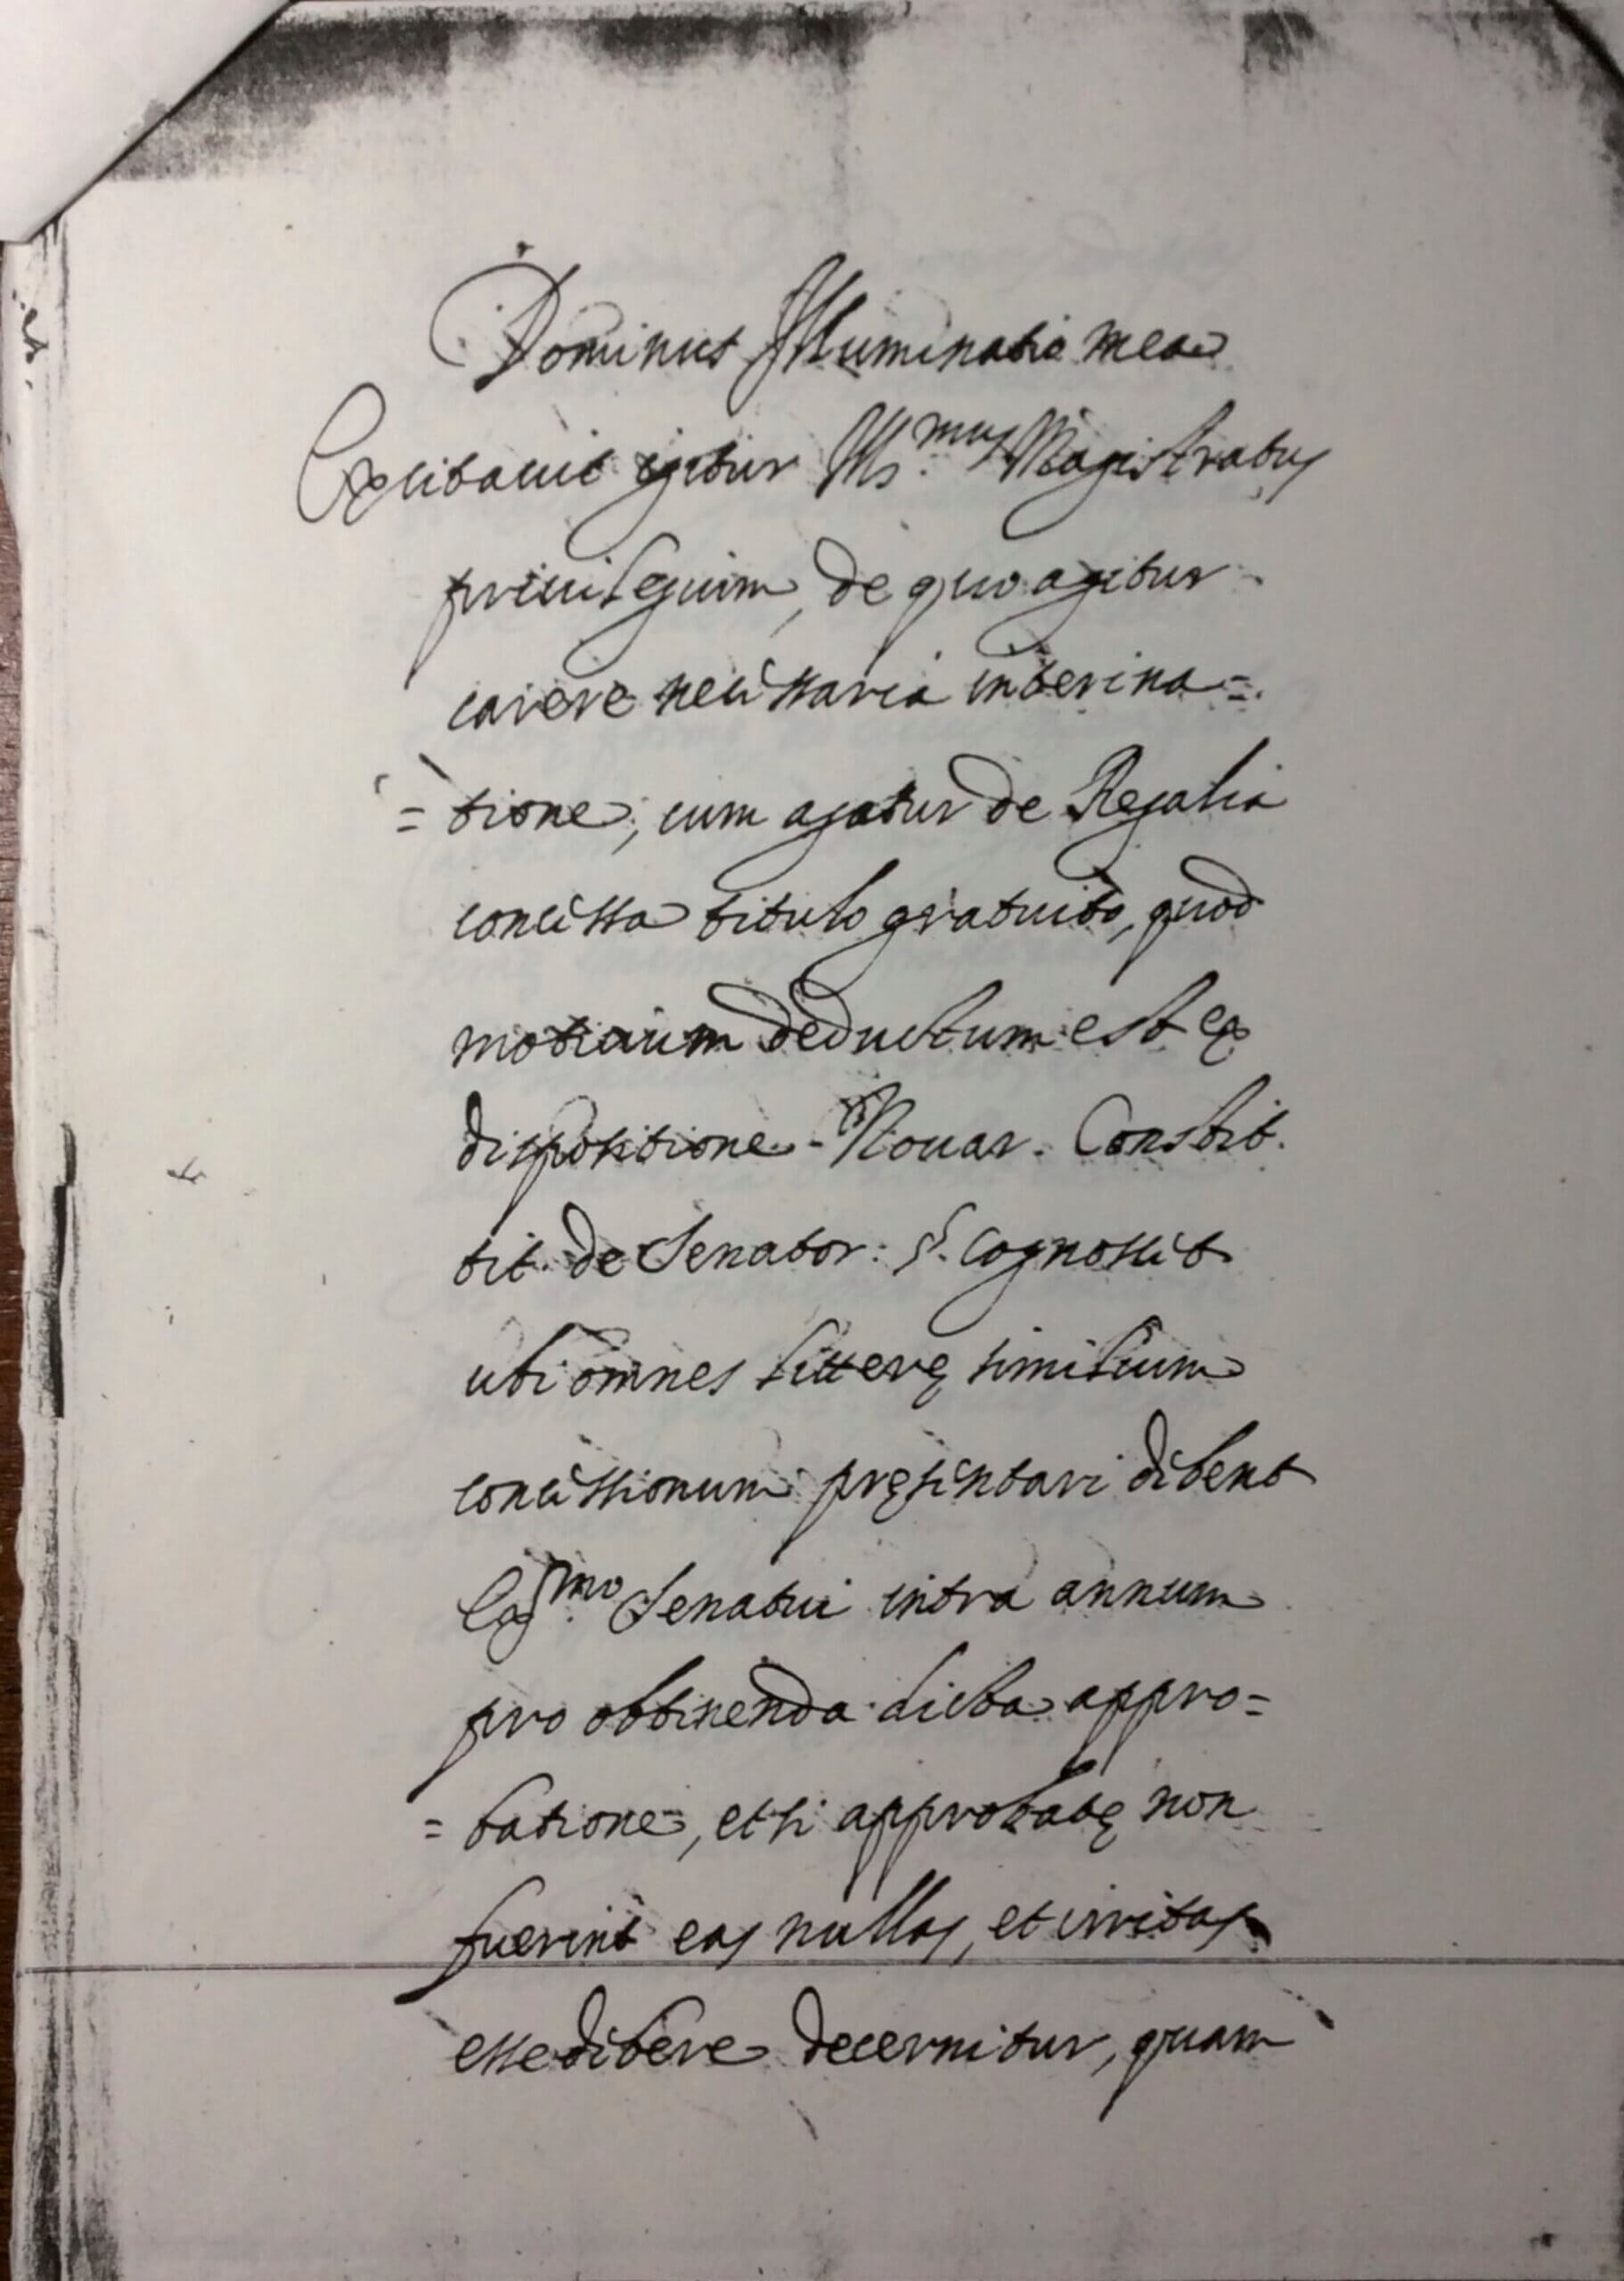 Dominus Illuminatio mea
Explicauit igitur Ill.mus Magistratus
priuilegium, de quo agitur
carere necessaria interina=
=tione, cum agatur de Regalia
concessa titulo gratuito, quod
motiuum deductum est ex
dispositione Nouar. Constit.
tit. de Senator: §. Cognoscit
ubi omnes litterę similium
concessionum pręsentari debent
Ex.mo Senatui intra annum
pro obtinenda dicta appro=
=batione, et si approbatę non
fuerint eas nullas, et irritas
esse debere decernitur, quam